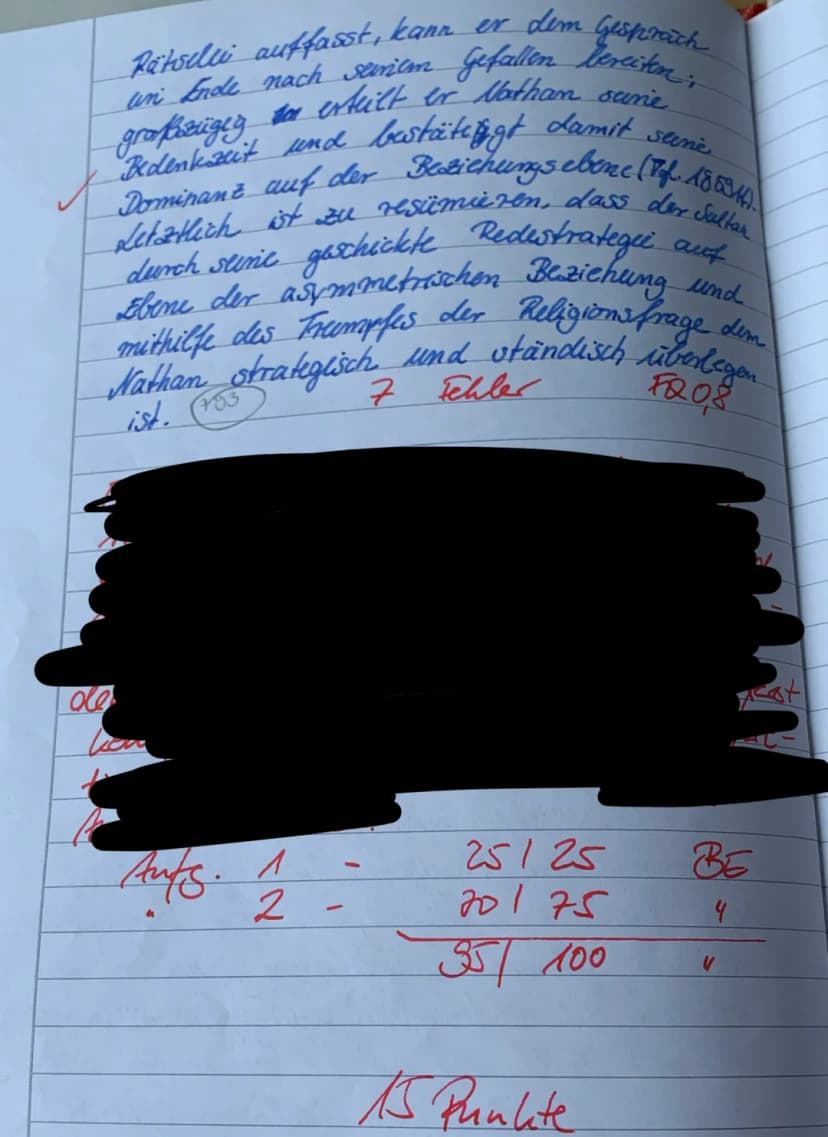 Rätselei auffasst, kann er dem Gespräch
ein Ende nach seinem Gefallen bereiten;
großzügig erteilt er Nathan seine
Bedenkzeit und bestätigt damit seine
Dominanz auf der Beziehungsebene (Vgl.
Letztlich ist zu resümieren, dass der Sultan
durch seine geschickte Redestrategei auf
Ebene der asymmetrischen Beziehung und
mithilfe des Trumpfes der Religionsfrage dem
Nathan strategisch und ständisch überlegen
ist. 793
7 Fehler FQ 0,8
Aufg. 1 - 25 / 25 BE
" 2 - 70 / 75 "
95 / 100 "
15 Punkte